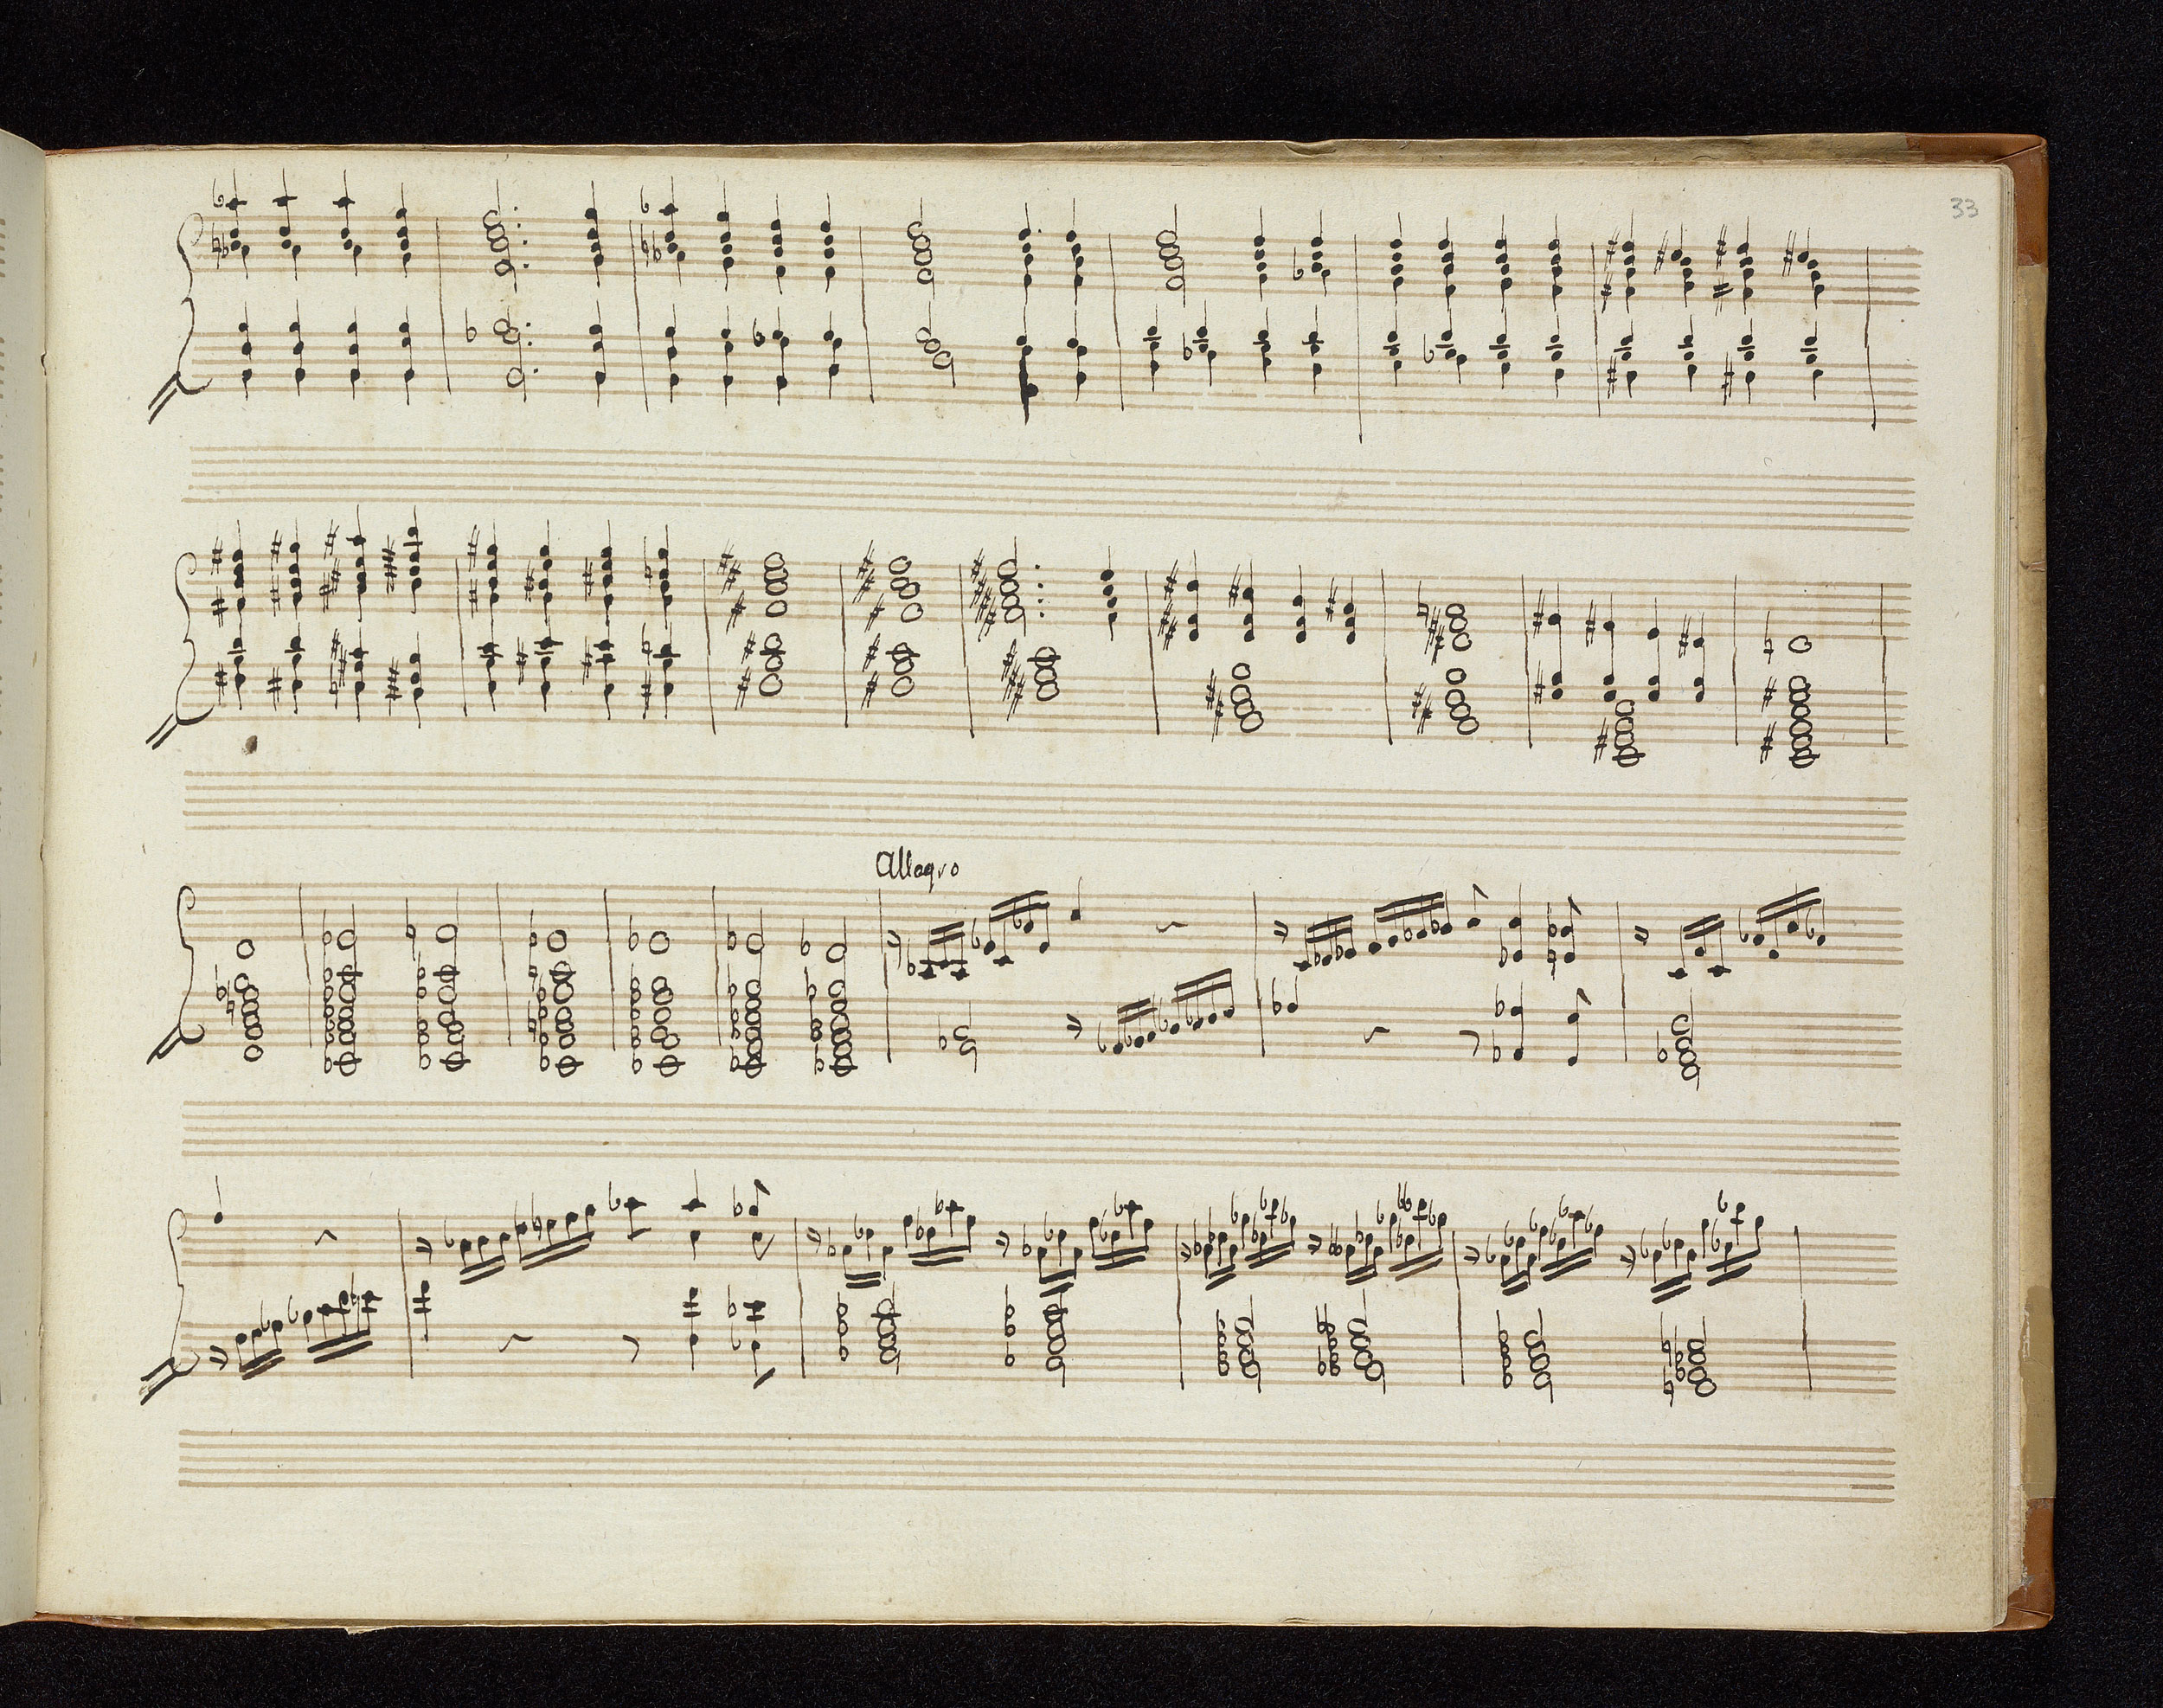 33
Allegro